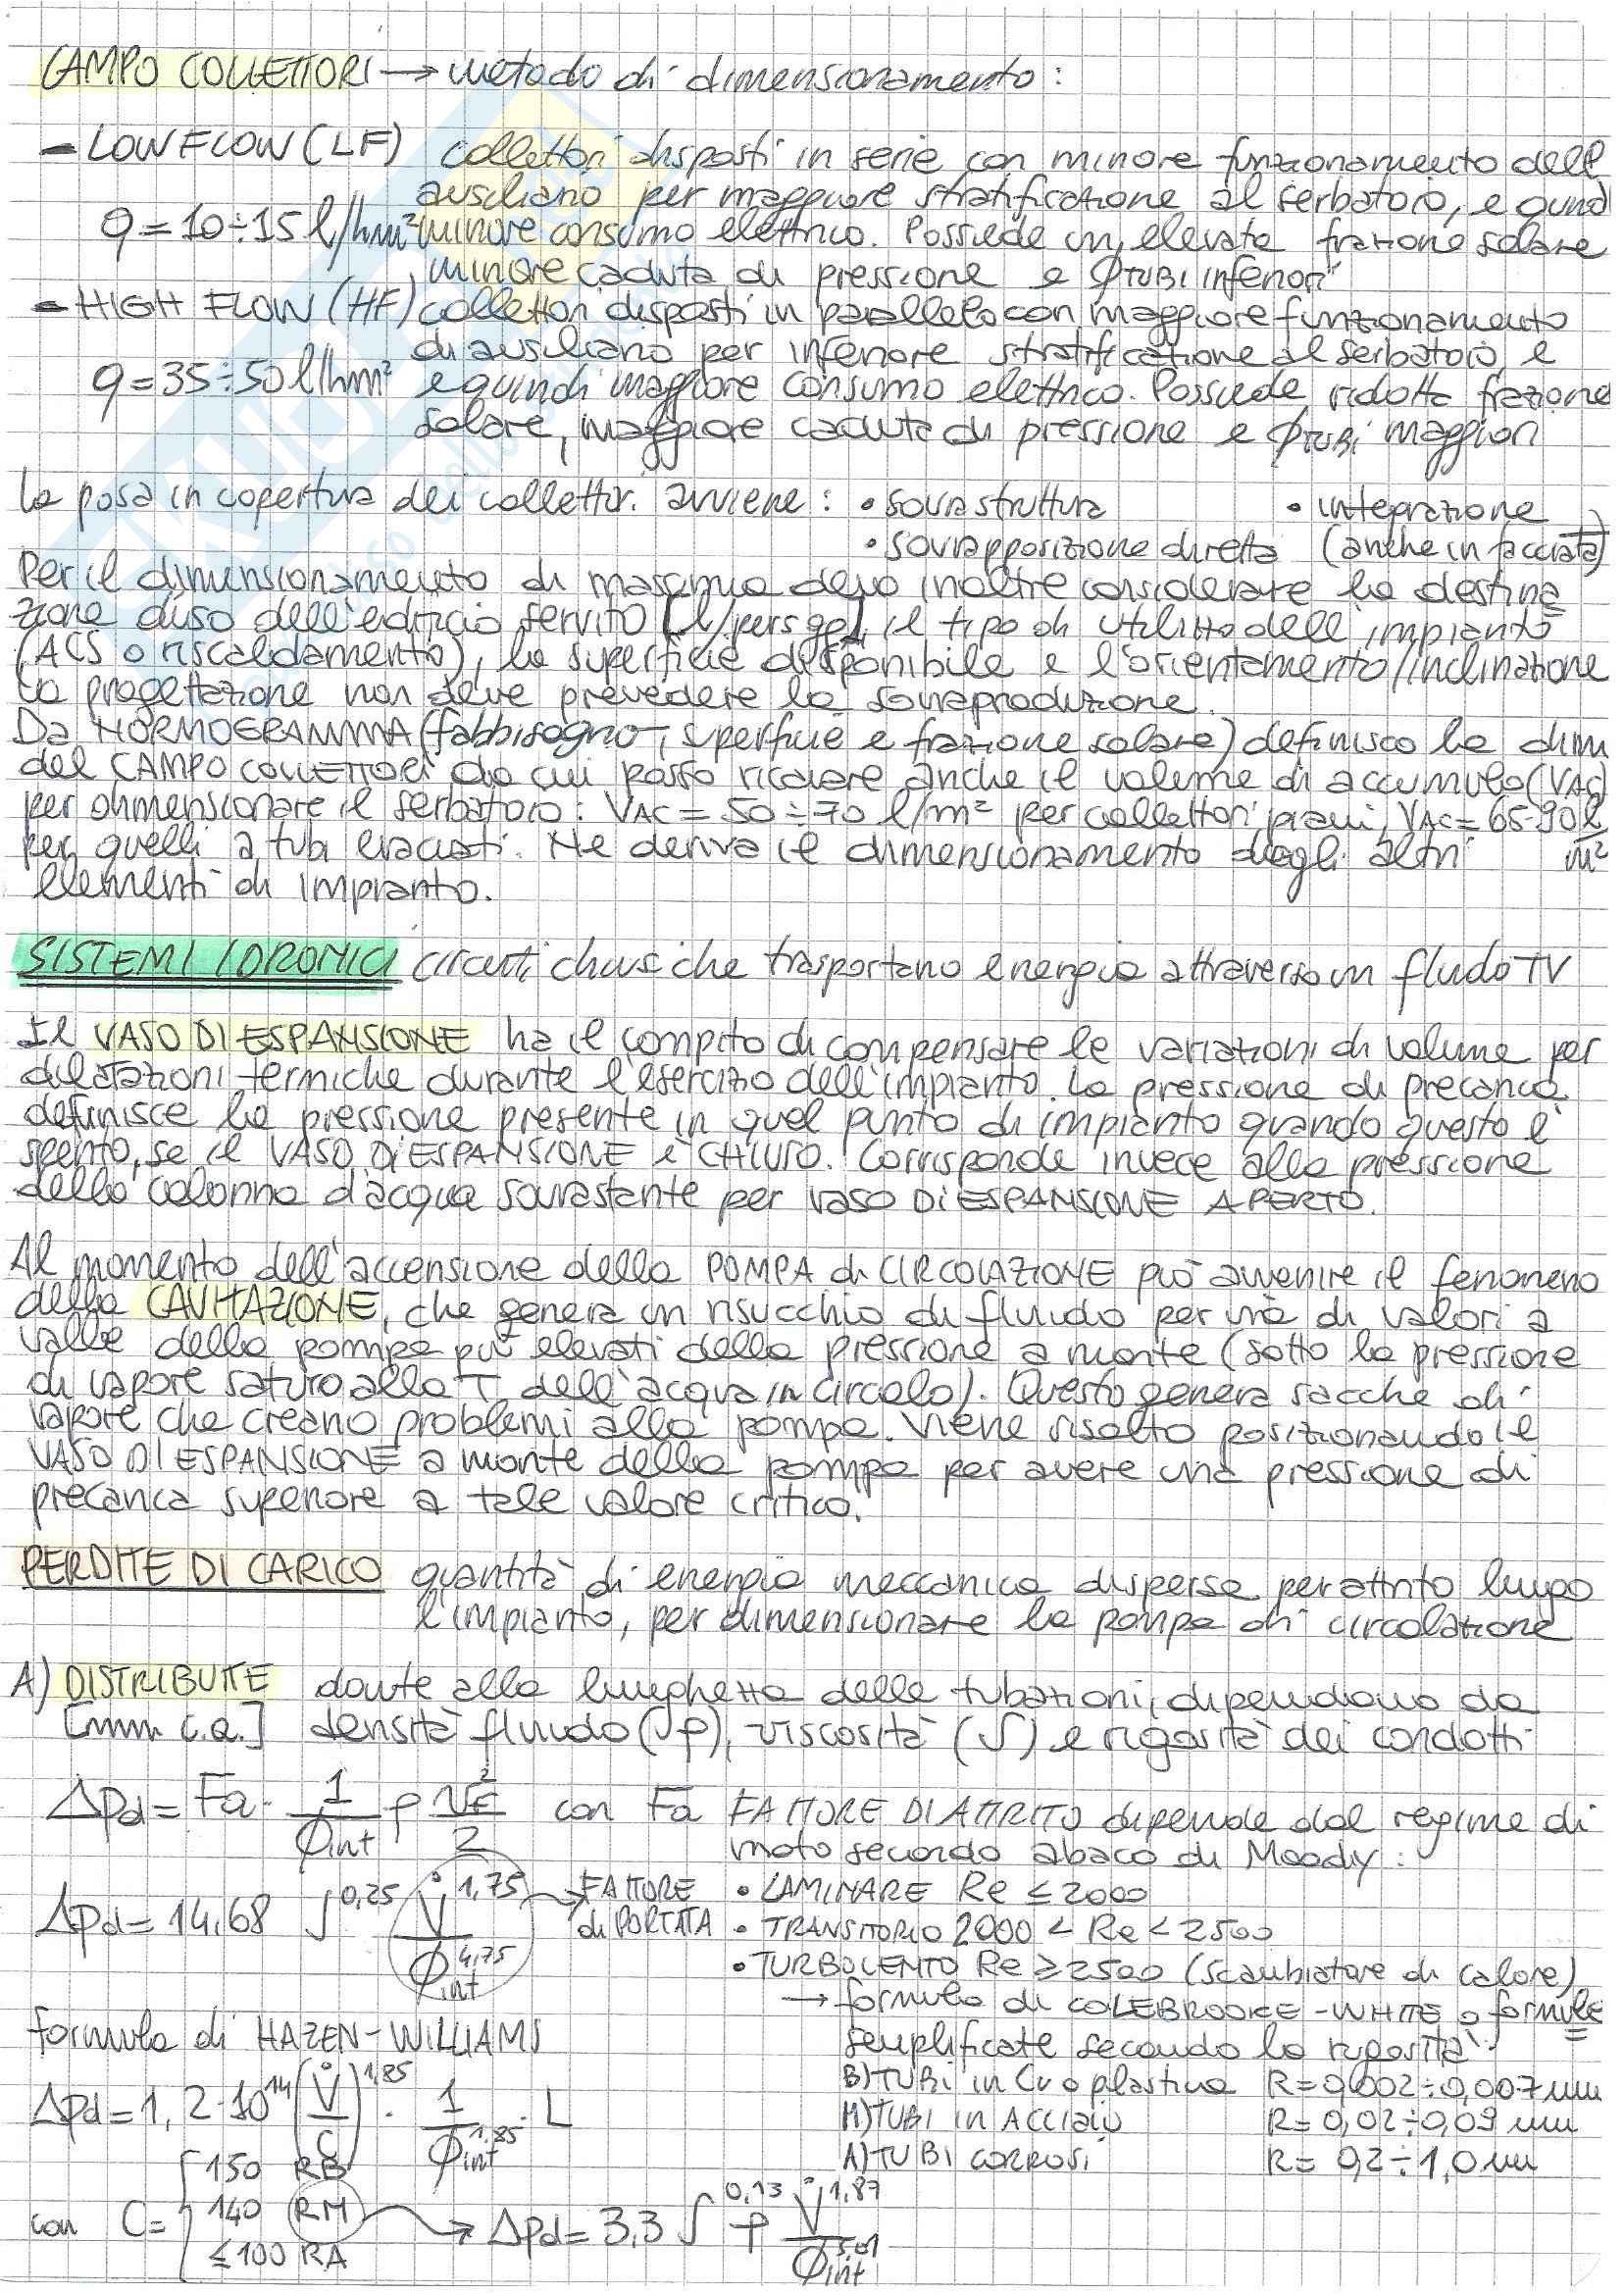 CAMPO COLLETTORI → metodo di dimensionamento:
- LOW FLOW (LF) collettori disposti in serie con minore funzionamento dell'
ausiliario per maggiore stratificazione al serbatoio, e quindi
q = 10÷15 l/hm² minore consumo elettrico. Possiede un'elevata frazione solare
minore caduta di pressione e ØTUBI inferiori
- HIGH FLOW (HF) collettori disposti in parallelo con maggiore funzionamento
di ausiliario per inferiore stratificazione al serbatoio e
q = 35÷50 l/hm² e quindi maggiore consumo elettrico. Possiede ridotta frazione
solare, maggiore caduta di pressione e ØTUBI maggiori
La posa in copertura dei collettori avviene: • sovrastruttura • integrazione
• sovrapposizione diretta (anche in facciata)
Per il dimensionamento di massima devo inoltre considerare la destina
zione d'uso dell'edificio servito [l/pers gg], il tipo di utilizzo dell'impianto
(ACS o riscaldamento), la superficie disponibile e l'orientamento/inclinazione
La progettazione non deve prevedere la sovraproduzione.
Da NORMOGRAMMA (fabbisogno, superficie e frazione solare) definisco la dim
del CAMPO COLLETTORI da cui posso ricavare anche il volume di accumulo (VAC)
per dimensionare il serbatoio: VAC = 50÷70 l/m² per collettori piani, VAC = 65-90 l/m²
per quelli a tubi evacuati. Ne deriva il dimensionamento degli altri
elementi di impianto.
SISTEMI IDRONICI circuiti chiusi che trasportano energia attraverso un fluido TV
Il VASO DI ESPANSIONE ha il compito di compensare le variazioni di volume per
dilatazioni termiche durante l'esercizio dell'impianto. La pressione di precarica
definisce la pressione presente in quel punto di impianto quando questo è
spento, se il VASO DI ESPANSIONE è CHIUSO. Corrisponde invece alla pressione
della colonna d'acqua sovrastante per VASO DI ESPANSIONE APERTO.
Al momento dell'accensione della POMPA di CIRCOLAZIONE può avvenire il fenomeno
della CAVITAZIONE, che genera un risucchio di fluido per via di valori a
valle della pompa più elevati della pressione a monte (sotto la pressione
di vapore saturo alla T dell'acqua in circolo). Questo genera sacche di
vapore che creano problemi alla pompa. Viene risolto posizionando il
VASO DI ESPANSIONE a monte della pompa per avere una pressione di
precarica superiore a tale valore critico.
PERDITE DI CARICO quantità di energia meccanica dispersa per attrito lungo
l'impianto, per dimensionare la pompa di circolazione
A) DISTRIBUITE dovute alla lunghezza delle tubazioni, dipendono da
[mm c.a.] densità fluido (ρ), viscosità (ʃ) e rugosità dei condotti
ΔPd = Fa · 1/Øint ρ vF²/2 con Fa FATTORE DI ATTRITO dipende dal regime di
moto secondo abaco di Moody:
ΔPd = 14,68 ʃ^0,25 V̇^1,75/Øint^4,75 → FATTORE di PORTATA
• LAMINARE Re ≤ 2000
• TRANSITORIO 2000 < Re < 2500
• TURBOLENTO Re ≥ 2500 (scambiatore di calore)
→ formula di COLEBROOKE-WHITE o formule
semplificate secondo la rugosità
B) TUBI in Cu o plastica R = 0,002÷0,007 mm
M) TUBI IN ACCIAIO R = 0,02÷0,09 mm
A) TUBI CORROSI R = 0,2÷1,0 mm
formula di HAZEN-WILLIAMS
ΔPd = 1,2·10^14 (V̇/C)^1,85 · 1/Øint^1,85 · L
con C = { 150 RB
140 RM → ΔPd = 3,3 ʃ^0,13 ρ V̇^1,87/Øint^5,01
≤100 RA